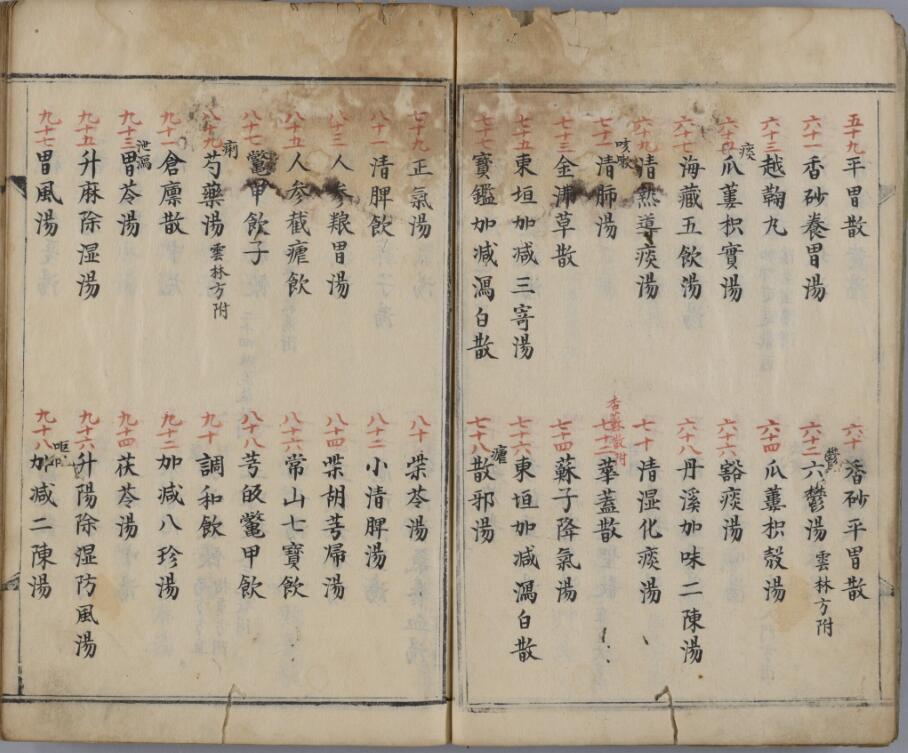 五十九 平胃散
六十 香砂平胃散
六十一 香砂養胃湯
鬱
六十二 六鬱湯 雲林方附
六十三 越鞠丸
六十四 瓜蔞枳殼湯
痰
六十五 瓜蔞枳實湯
六十六 豁痰湯
六十七 海藏五飲湯
六十八 丹溪加味二陳湯
六十九 清熱導痰湯
七十 清湿化痰湯
咳嗽
七十一 清肺湯
香蘇散附
七十二 華蓋散
七十三 金沸草散
七十四 蘇子降氣湯
七十五 東垣加减三奇湯
七十六 東垣加减瀉白散
七十七 寶鑑加减瀉白散
瘧
七十八 散邪湯
七十九 正氣湯
八十 柴苓湯
八十一 清脾飲
八十二 小清脾湯
八十三 人参粮胃湯
八十四 柴胡芎帰湯
八十五 人参截瘧飲
八十六 常山七寶飲
八十七 鱉甲飲子
八十八 芎皈鱉甲飲
痢
八十九 芍藥湯 雲林方附
九十 調和飲
九十一 倉廪散
九十二 加减八珍湯
泄瀉
九十三 胃苓湯
九十四 茯苓湯
九十五 升麻除湿湯
九十六 升陽除湿防風湯
九十七 胃風湯
九十八 加减二陳湯